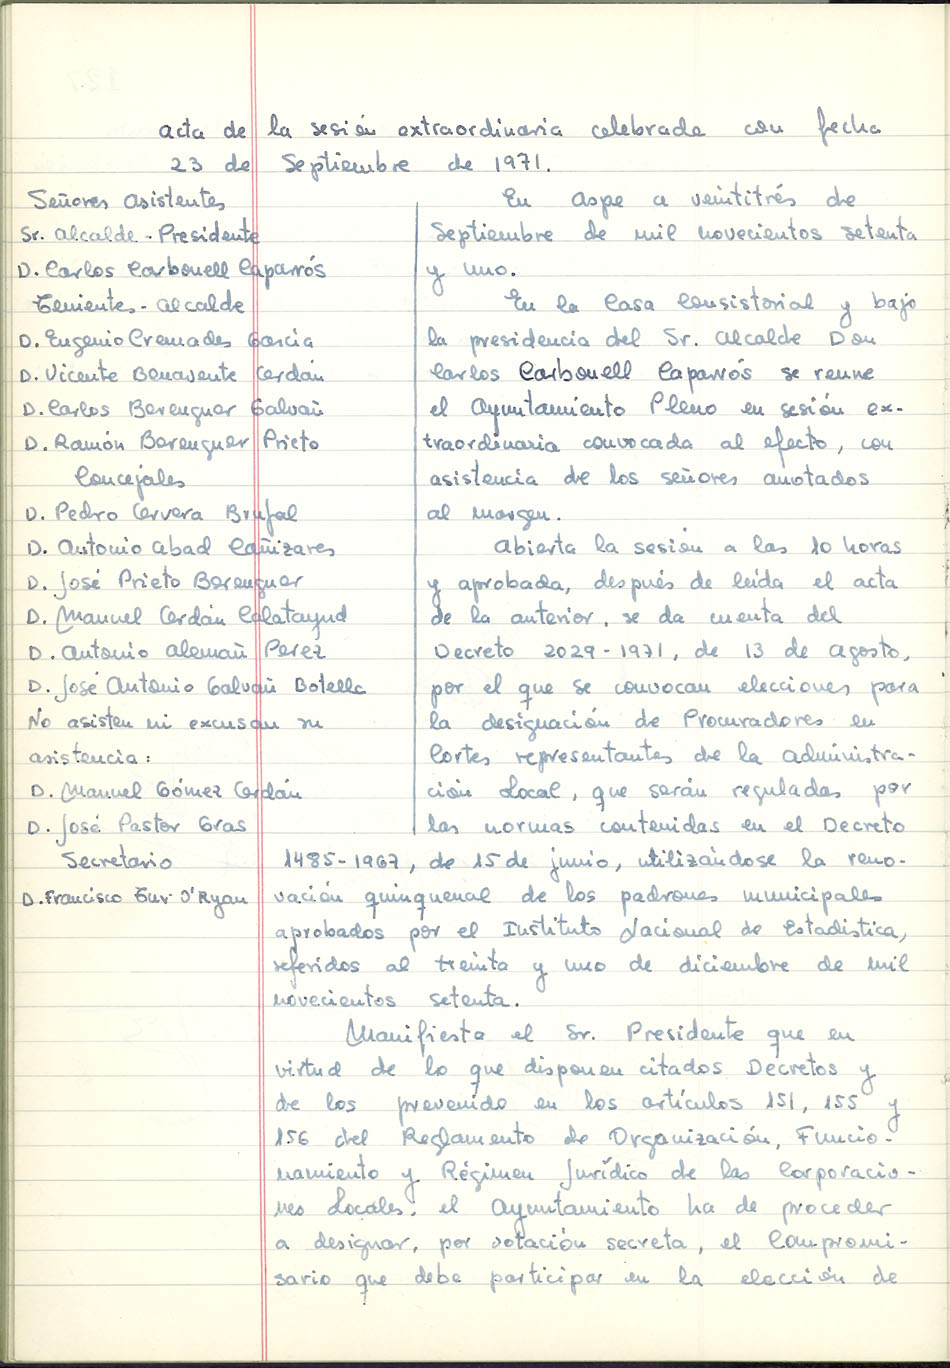 acta de la sesión extraordinaria celebrada con fecha
23 de Septiembre de 1971.
Señores asistentes
Sr. alcalde - Presidente
D. Carlos Carbonell Caparrós
Teniente - alcalde
D. Eugenio Cremades García
D. Vicente Benavente Cerdán
D. Carlos Berenguer Galvañ
D. Ramón Berenguer Prieto
Concejales
D. Pedro Cervera Brufal
D. Antonio abad Cañizares
D. José Prieto Berenguer
D. Manuel Cerdán Calatayud
D. Antonio alemañ Perez
D. José Antonio Galvañ Botella
No asisten ni excusan su
asistencia:
D. Manuel Gómez Cerdán
D. José Pastor Gras
Secretario
D. Francisco Tur O'Ryan
En aspe a veintitrés de
Septiembre de mil novecientos setenta
y uno.
En la Casa Consistorial y bajo
la presidencia del Sr. alcalde Don
Carlos Carbonell Caparrós se reune
el Ayuntamiento Pleno en sesión ex-
traordinaria convocada al efecto, con
asistencia de los señores anotados
al margen.
Abierta la sesión a las 10 horas
y aprobada, después de leída el acta
de la anterior, se da cuenta del
Decreto 2029-1971, de 13 de agosto,
por el que se convocan elecciones para
la designación de Procuradores en
Cortes representantes de la administra-
ción Local, que serán reguladas por
las normas contenidas en el Decreto
1485-1967, de 15 de junio, utilizándose la reno-
vación quinquenal de los padrones municipales
aprobados por el Instituto Nacional de Estadistica,
referidos al treinta y uno de diciembre de mil
novecientos setenta.
Manifiesta el Sr. Presidente que en
virtud de lo que disponen citados Decretos y
de los prevenido en los artículos 151, 155 y
156 del Reglamento de Organización, Funcio-
namiento y Régimen Jurídico de las Corporacio-
nes Locales, el Ayuntamiento ha de proceder
a designar, por votación secreta, el Compromi-
sario que debe participar en la elección de